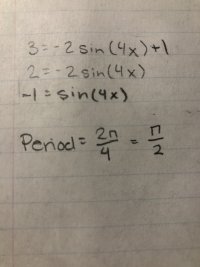 3 = -2 sin(4x) + 1
2 = -2 sin(4x)
-1 = sin(4x)
Period = 2π/4 = π/2